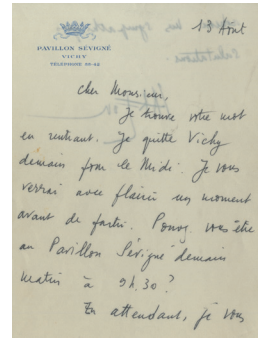 13 Août
PAVILLON SÉVIGNÉ
VICHY
TÉLÉPHONE 30-42
Cher Monsieur,
Je trouve votre mot
en rentrant. Je quitte Vichy
demain pour le Midi. Je vous
verrai avec plaisir un moment
avant de partir. Pouvez vous être
au Pavillon Sévigné demain
matin à 9h,30 ?
En attendant, je vous